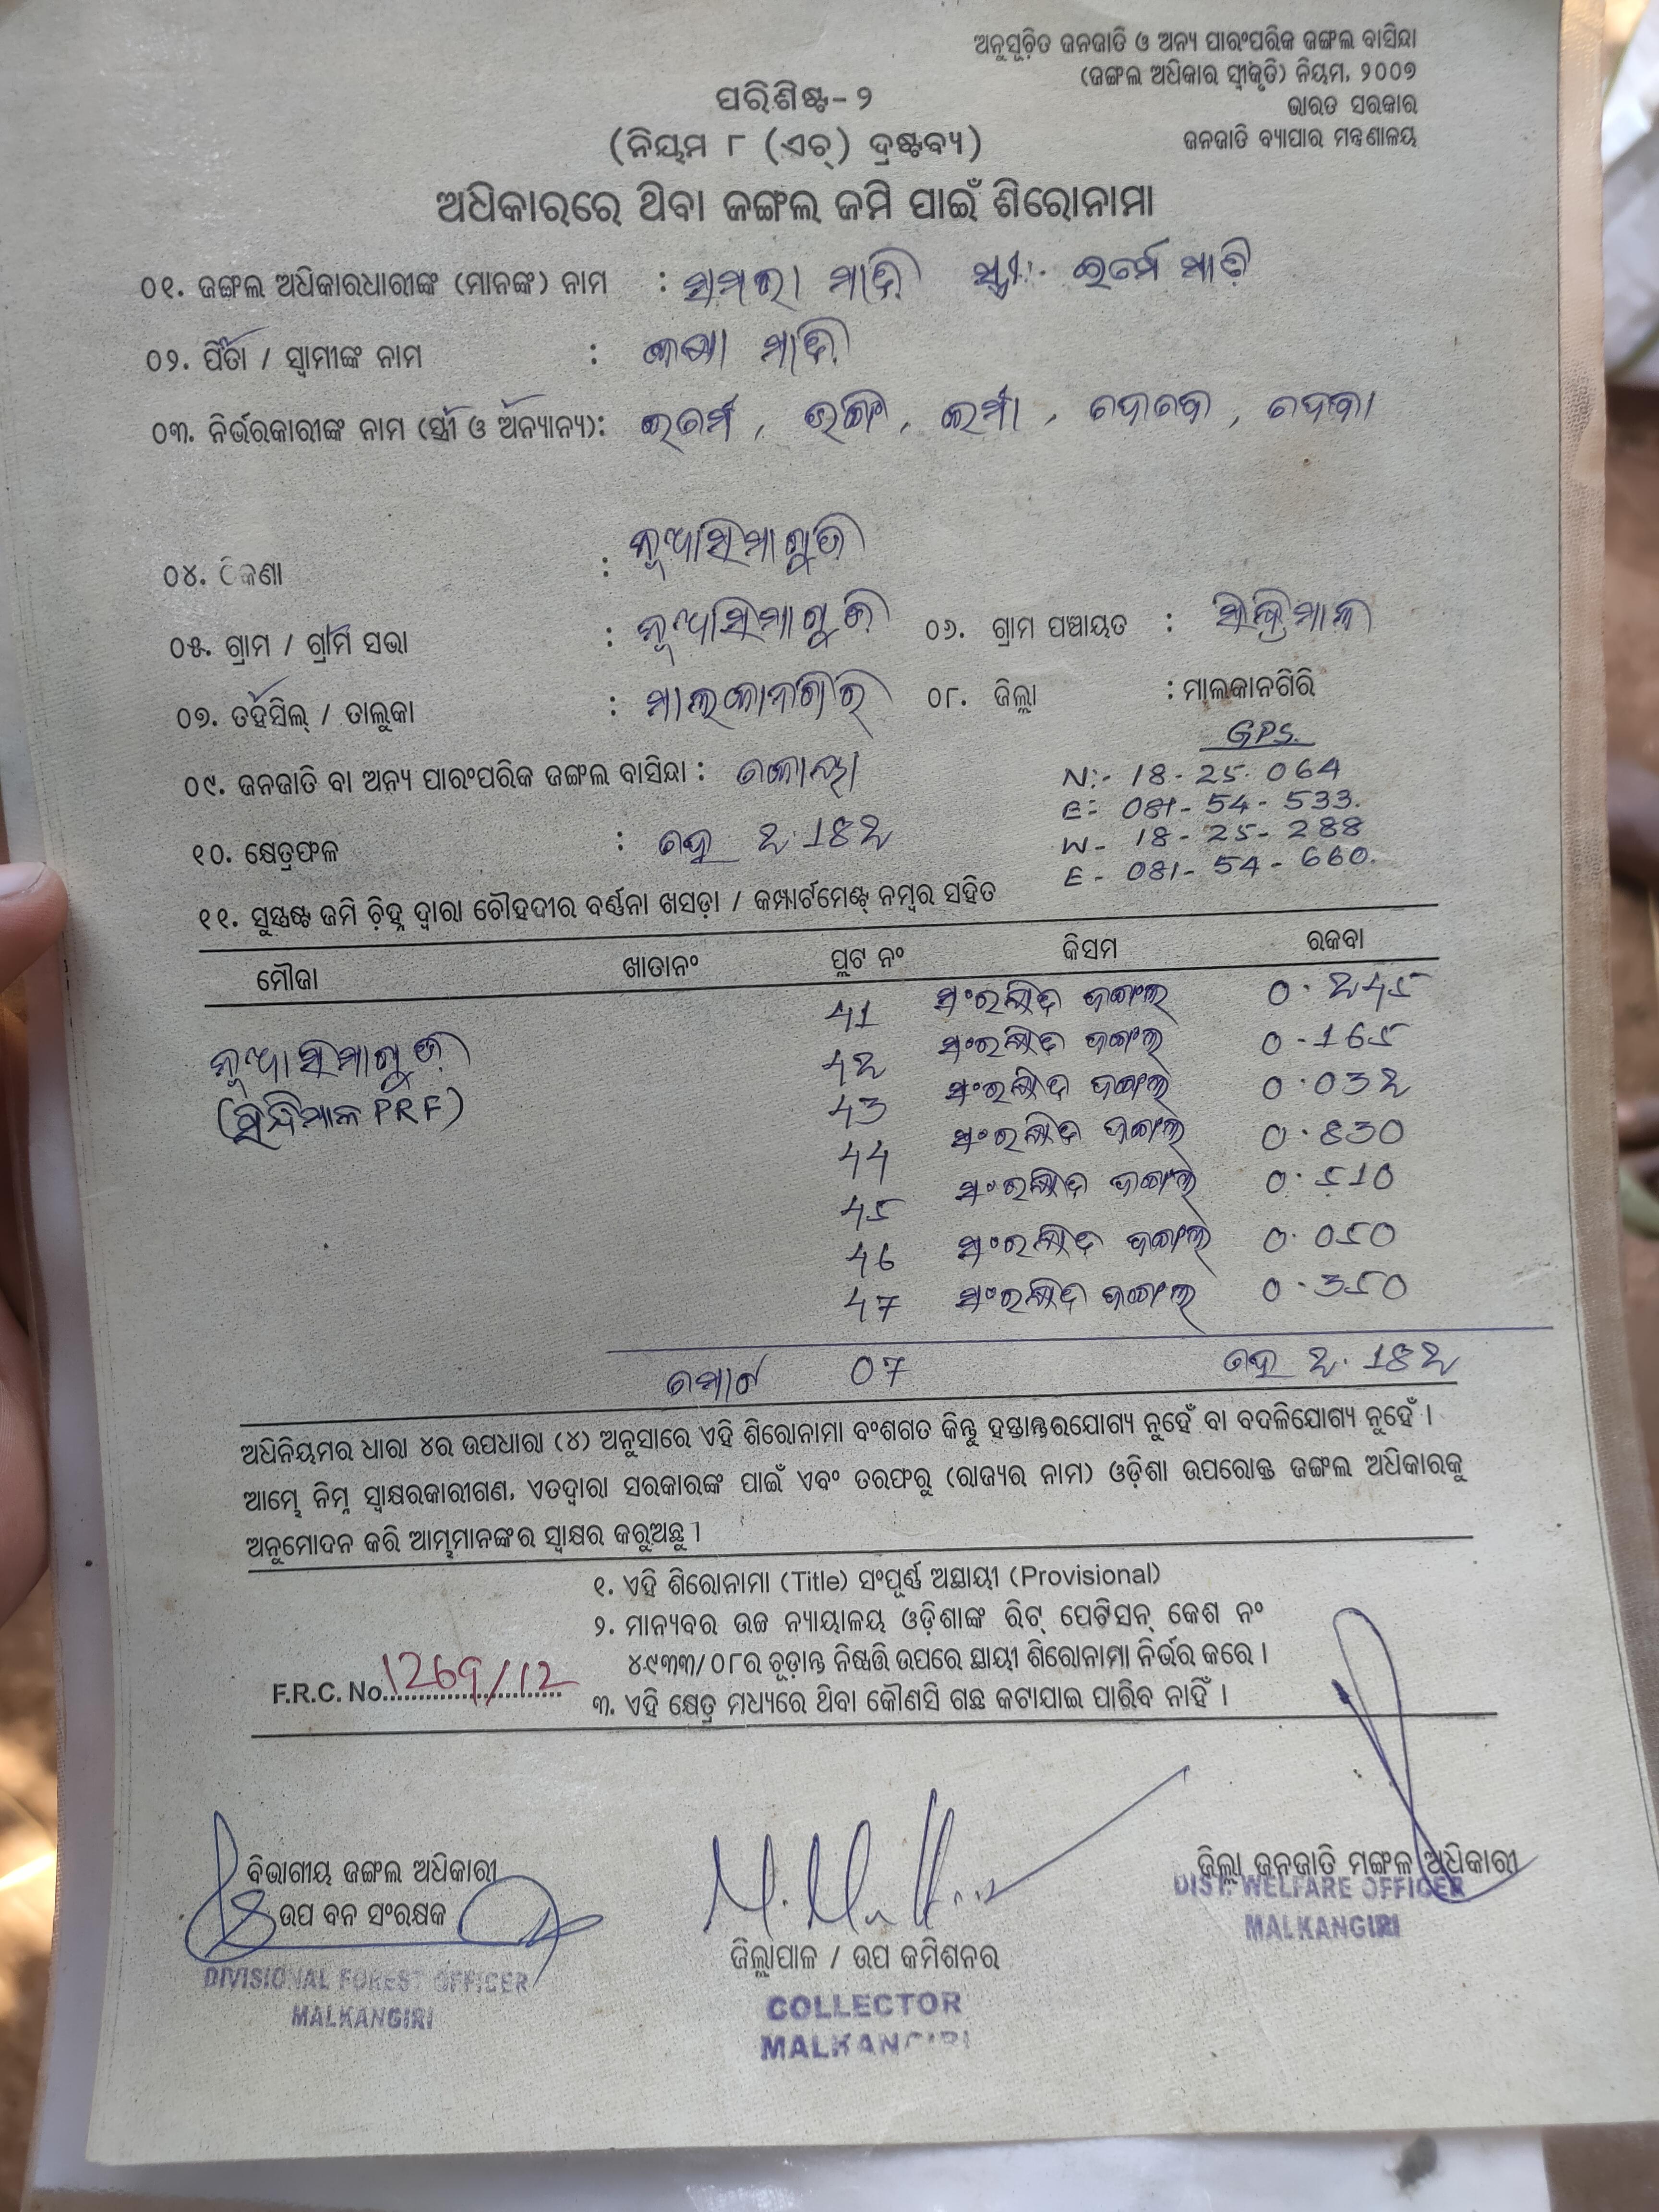 ଅନୁସୂଚିତ ଜନଜାତି ଓ ଅନ୍ୟ ପାରଂପରିକ ଜଙ୍ଗଲ ବାସିନ୍ଦା
(ଜଙ୍ଗଲ ଅଧିକାର ସ୍ୱୀକୃତି) ନିୟମ, ୨୦୦୭
ଭାରତ ସରକାର
ଜନଜାତି ବ୍ୟାପାର ମନ୍ତ୍ରଣାଳୟ
ପରିଶିଷ୍ଟ-୨
(ନିୟମ ୮ (ଏଚ୍) ଦ୍ରଷ୍ଟବ୍ୟ)
ଅଧିକାରରେ ଥିବା ଜଙ୍ଗଲ ଜମି ପାଇଁ ଶିରୋନାମା
୦୧. ଜଙ୍ଗଲ ଅଧିକାରଧାରୀଙ୍କ (ମାନଙ୍କ) ନାମ :
୦୨. ପିତା / ସ୍ୱାମୀଙ୍କ ନାମ : ମାଡ଼ି
୦୩. ନିର୍ଭରକାରୀଙ୍କ ନାମ (ସ୍ତ୍ରୀ ଓ ଅନ୍ୟାନ୍ୟ):
୦୪. ଠିକଣା : ନୂଆସିମାଗୁଡ଼ି
୦୫. ଗ୍ରାମ / ଗ୍ରାମ ସଭା : ନୂଆସିମାଗୁଡ଼ି ୦୬. ଗ୍ରାମ ପଞ୍ଚାୟତ :
୦୭. ତହସିଲ୍ / ତାଲୁକା : ମାଲକାନଗିରି ୦୮. ଜିଲ୍ଲା : ମାଲକାନଗିରି
GPS.
୦୯. ଜନଜାତି ବା ଅନ୍ୟ ପାରଂପରିକ ଜଙ୍ଗଲ ବାସିନ୍ଦା : କୋୟା N:- 18-25-064
E:- 081-54-533.
୧୦. କ୍ଷେତ୍ରଫଳ : ହେ 2.182 N- 18-25-288
E- 081-54-660.
୧୧. ସୁସ୍ପଷ୍ଟ ଜମି ଚିହ୍ନ ଦ୍ୱାରା ଚୌହଦୀର ବର୍ଣ୍ଣନା ଖସଡ଼ା / କମ୍ପାର୍ଟମେଣ୍ଟ୍ ନମ୍ବର ସହିତ
ମୌଜା ଖାତାନଂ ପ୍ଲଟ ନଂ କିସମ ରକବା
41 ସଂରକ୍ଷିତ ଜଙ୍ଗଲ 0.245
ନୂଆସିମାଗୁଡ଼ି 42 ସଂରକ୍ଷିତ ଜଙ୍ଗଲ 0.165
(PRF) 43 ସଂରକ୍ଷିତ ଜଙ୍ଗଲ 0.032
44 ସଂରକ୍ଷିତ ଜଙ୍ଗଲ 0.830
45 ସଂରକ୍ଷିତ ଜଙ୍ଗଲ 0.510
46 ସଂରକ୍ଷିତ ଜଙ୍ଗଲ 0.050
47 ସଂରକ୍ଷିତ ଜଙ୍ଗଲ 0.350
ମୋଟ 07 ହେ 2.182
ଅଧିନିୟମର ଧାରା ୪ର ଉପଧାରା (୪) ଅନୁସାରେ ଏହି ଶିରୋନାମା ବଂଶଗତ କିନ୍ତୁ ହସ୍ତାନ୍ତରଯୋଗ୍ୟ ନୁହେଁ ବା ବଦଳିଯୋଗ୍ୟ ନୁହେଁ ।
ଆମ୍ଭେ ନିମ୍ନ ସ୍ୱାକ୍ଷରକାରୀଗଣ, ଏତଦ୍ୱାରା ସରକାରଙ୍କ ପାଇଁ ଏବଂ ତରଫରୁ (ରାଜ୍ୟର ନାମ) ଓଡ଼ିଶା ଉପରୋକ୍ତ ଜଙ୍ଗଲ ଅଧିକାରକୁ
ଅନୁମୋଦନ କରି ଆମ୍ଭମାନଙ୍କର ସ୍ୱାକ୍ଷର କରୁଅଛୁ ।
୧. ଏହି ଶିରୋନାମା (Title) ସଂପୂର୍ଣ୍ଣ ଅସ୍ଥାୟୀ (Provisional)
୨. ମାନ୍ୟବର ଉଚ୍ଚ ନ୍ୟାୟାଳୟ ଓଡ଼ିଶାଙ୍କ ରିଟ୍ ପେଟିସନ୍ କେଶ ନଂ
୪୯୩୩/୦୮ର ଚୂଡ଼ାନ୍ତ ନିଷ୍ପତ୍ତି ଉପରେ ସ୍ଥାୟୀ ଶିରୋନାମା ନିର୍ଭର କରେ ।
F.R.C. No. 1269/12 ୩. ଏହି କ୍ଷେତ୍ର ମଧ୍ୟରେ ଥିବା କୌଣସି ଗଛ କଟାଯାଇ ପାରିବ ନାହିଁ ।
ବିଭାଗୀୟ ଜଙ୍ଗଲ ଅଧିକାରୀ
ଉପ ବନ ସଂରକ୍ଷକ
DIVISIONAL FOREST OFFICER
MALKANGIRI
ଜିଲ୍ଲାପାଳ / ଉପ କମିଶନର
COLLECTOR
MALKANGIRI
ଜିଲ୍ଲା ଜନଜାତି ମଙ୍ଗଳ ଅଧିକାରୀ
DIST. WELFARE OFFICER
MALKANGIRI